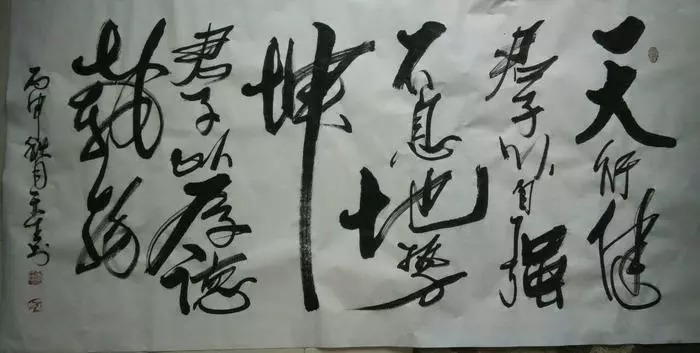 天行健
君子以自强
不息地势
坤
君子以厚德
载物
丙申